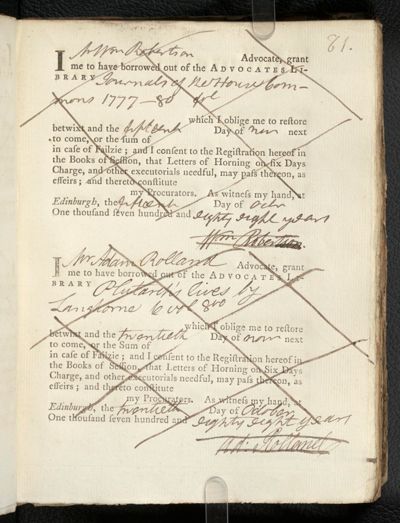 81.
I Mr Wm Robertson Advocate, grant
me to have borrowed out of the ADVOCATES LI-
BRARY Journals of the House Com-
mons 1777–80 vol
which I oblige me to restore
betwixt and the fifteenth Day of nov next
to come, or the sum of
in case of Failzie; and I consent to the Registration hereof in
the Books of Session, that Letters of Horning on six Days
Charge, and other executorials needful, may pass thereon, as
effeirs; and thereto constitute
my Procurators. As witness my hand, at
Edinburgh, the fifteenth Day of Octr
One thousand seven hundred and eighty eight years
Wm Robertson.
I Mr Adam Rolland Advocate, grant
me to have borrowed out of the ADVOCATES LI-
BRARY Plutarch's lives by
Langhorne 6 vol 8vo
which I oblige me to restore
betwixt and the twentieth Day of nov next
to come, or the Sum of
in case of Failzie; and I consent to the Registration hereof in
the Books of Session, that Letters of Horning on Six Days
Charge, and other executorials needful, may pass thereon, as
effeirs; and thereto constitute
my Procurators. As witness my hand, at
Edinburgh, the twentieth Day of October
One thousand seven hundred and eighty eight years
Ad: Rolland